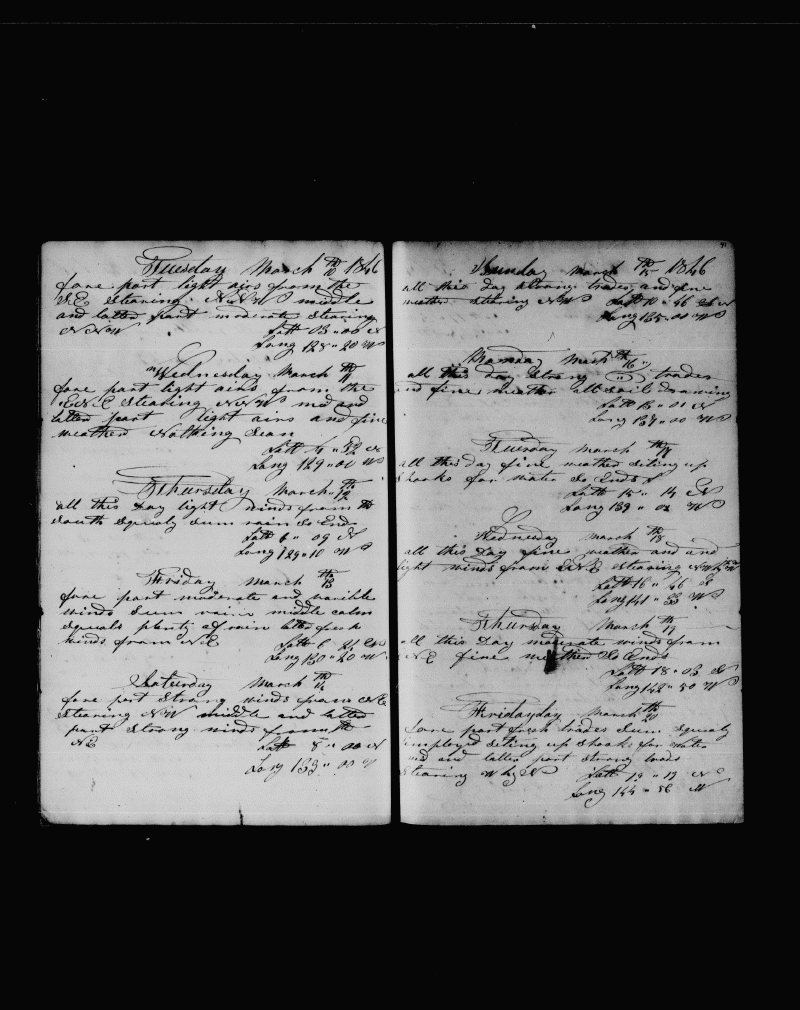 Tuesday March 10th 1846
fore part light airs from the
S.E. Stearing N N W middle
and latter part moderate Stearing
N N W Latt 03 " 00 N
Long 128 " 20 W
Wednesday March 11th
fore part light airs from the
E N E Stearing N N W mid and
latter part light airs and fine
weather Nothing Sean
Latt 4 " 52 N
Long 129 " 01 W
Thursday March 12th
all this Day light winds from the
South Squaly Sum rain So Ends
Latt 6 " 09 N
Long 129 " 10 W
Friday March 13th
fore part moderate and varible
winds Sum rain middle calm
Squals plenty of rain latter fresh
winds from N E Latt 6 " 21 N
Long 130 " 20 W
Saturday March 14th
fore part Strong winds from N E
Stearing N W middle and latter
part Strong winds from the
N E Latt 8 " 00 N
Long 133 " 00 W
91
Sunday March 15th 1846
all this day Strong trades and fine
weather Stearing N W Latt 10 " 46 N
Long 135 " 00 W
Monday March 16th
all this day Strong trades
and fine weather all Sail drawing
Latt 13 " 01 N
Long 137 " 00 W
Tuesday March 17th
all this day fine weather Siting up
Shooks for water So Ends
Latt 15 " 14 N
Long 139 " 02 W
Wednesday March 18th
all this Day fine weather and
light winds from E N E Stearing
Latt 16 " 46
Long 141 " 33 W
Thursday March 19th
all this Day moderate winds from
N E fine weather So Ends
Latt 18 " 03 N
Long 142 " 50 W
Fridayday March 20th
fore part fresh trades Sum Squaly
imployd Siting up Shooks for water
mid and latter part Strong trads
Stearing W by N Latt 19 " 17 N
Long 144 " 56 W